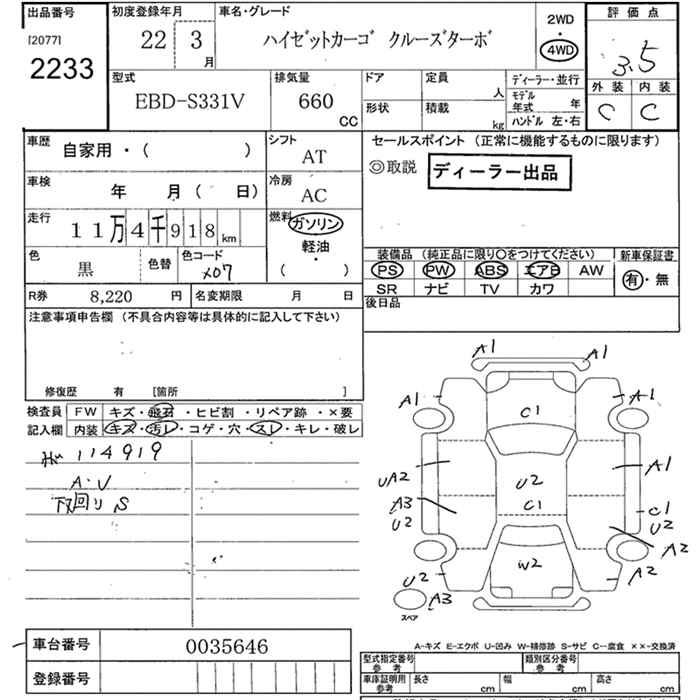 出品番号
[2077]
2233
初度登録年月
22 3 月
車名・グレード
ハイゼットカーゴ クルーズターボ
2WD
・
4WD
評価点
3.5
外装 内装
C C
型式
EBD-S331V
排気量
660
CC
ドア
定員
人
形状
積載
kg
ディーラー・並行
モデル
年式 年
ハンドル 左・右
車歴
自家用・( )
シフト
AT
車検
年 月( 日)
冷房
AC
走行
11万4千918km
燃料
ガソリン
軽油・
( )
色
黒
色替
色コード
X07
R券 8,220 円
名変期限 月 日
セールスポイント (正常に機能するものに限ります)
◎取説
ディーラー出品
装備品 (純正品に限り○をつけてください)
新車保証書
PS PW ABS エアB AW
有・無
SR ナビ TV カワ
後日品
注意事項申告欄 (不具合内容等は具体的に記入して下さい)
修復歴 有 [箇所 ]
検査員
記入欄
FW キズ・飛石・ヒビ割・リペア跡・×要
内装 キズ・汚レ・コゲ・穴・スレ・キレ・破レ
114919
A・V
下回りS
A1
A1
A1
A1
C1
UA2
A1
U2
A3
U2
C1
C1
U2
A2
U2
W2
A2
A3
スペア
A-キズ E-エクボ U-凹み W-補修跡 S-サビ C-腐食 ××-交換済
車台番号 0035646
登録番号
型式指定番号
参考
類別区分番号
参考
車庫証明用
参考
長さ cm
幅 cm
高さ cm